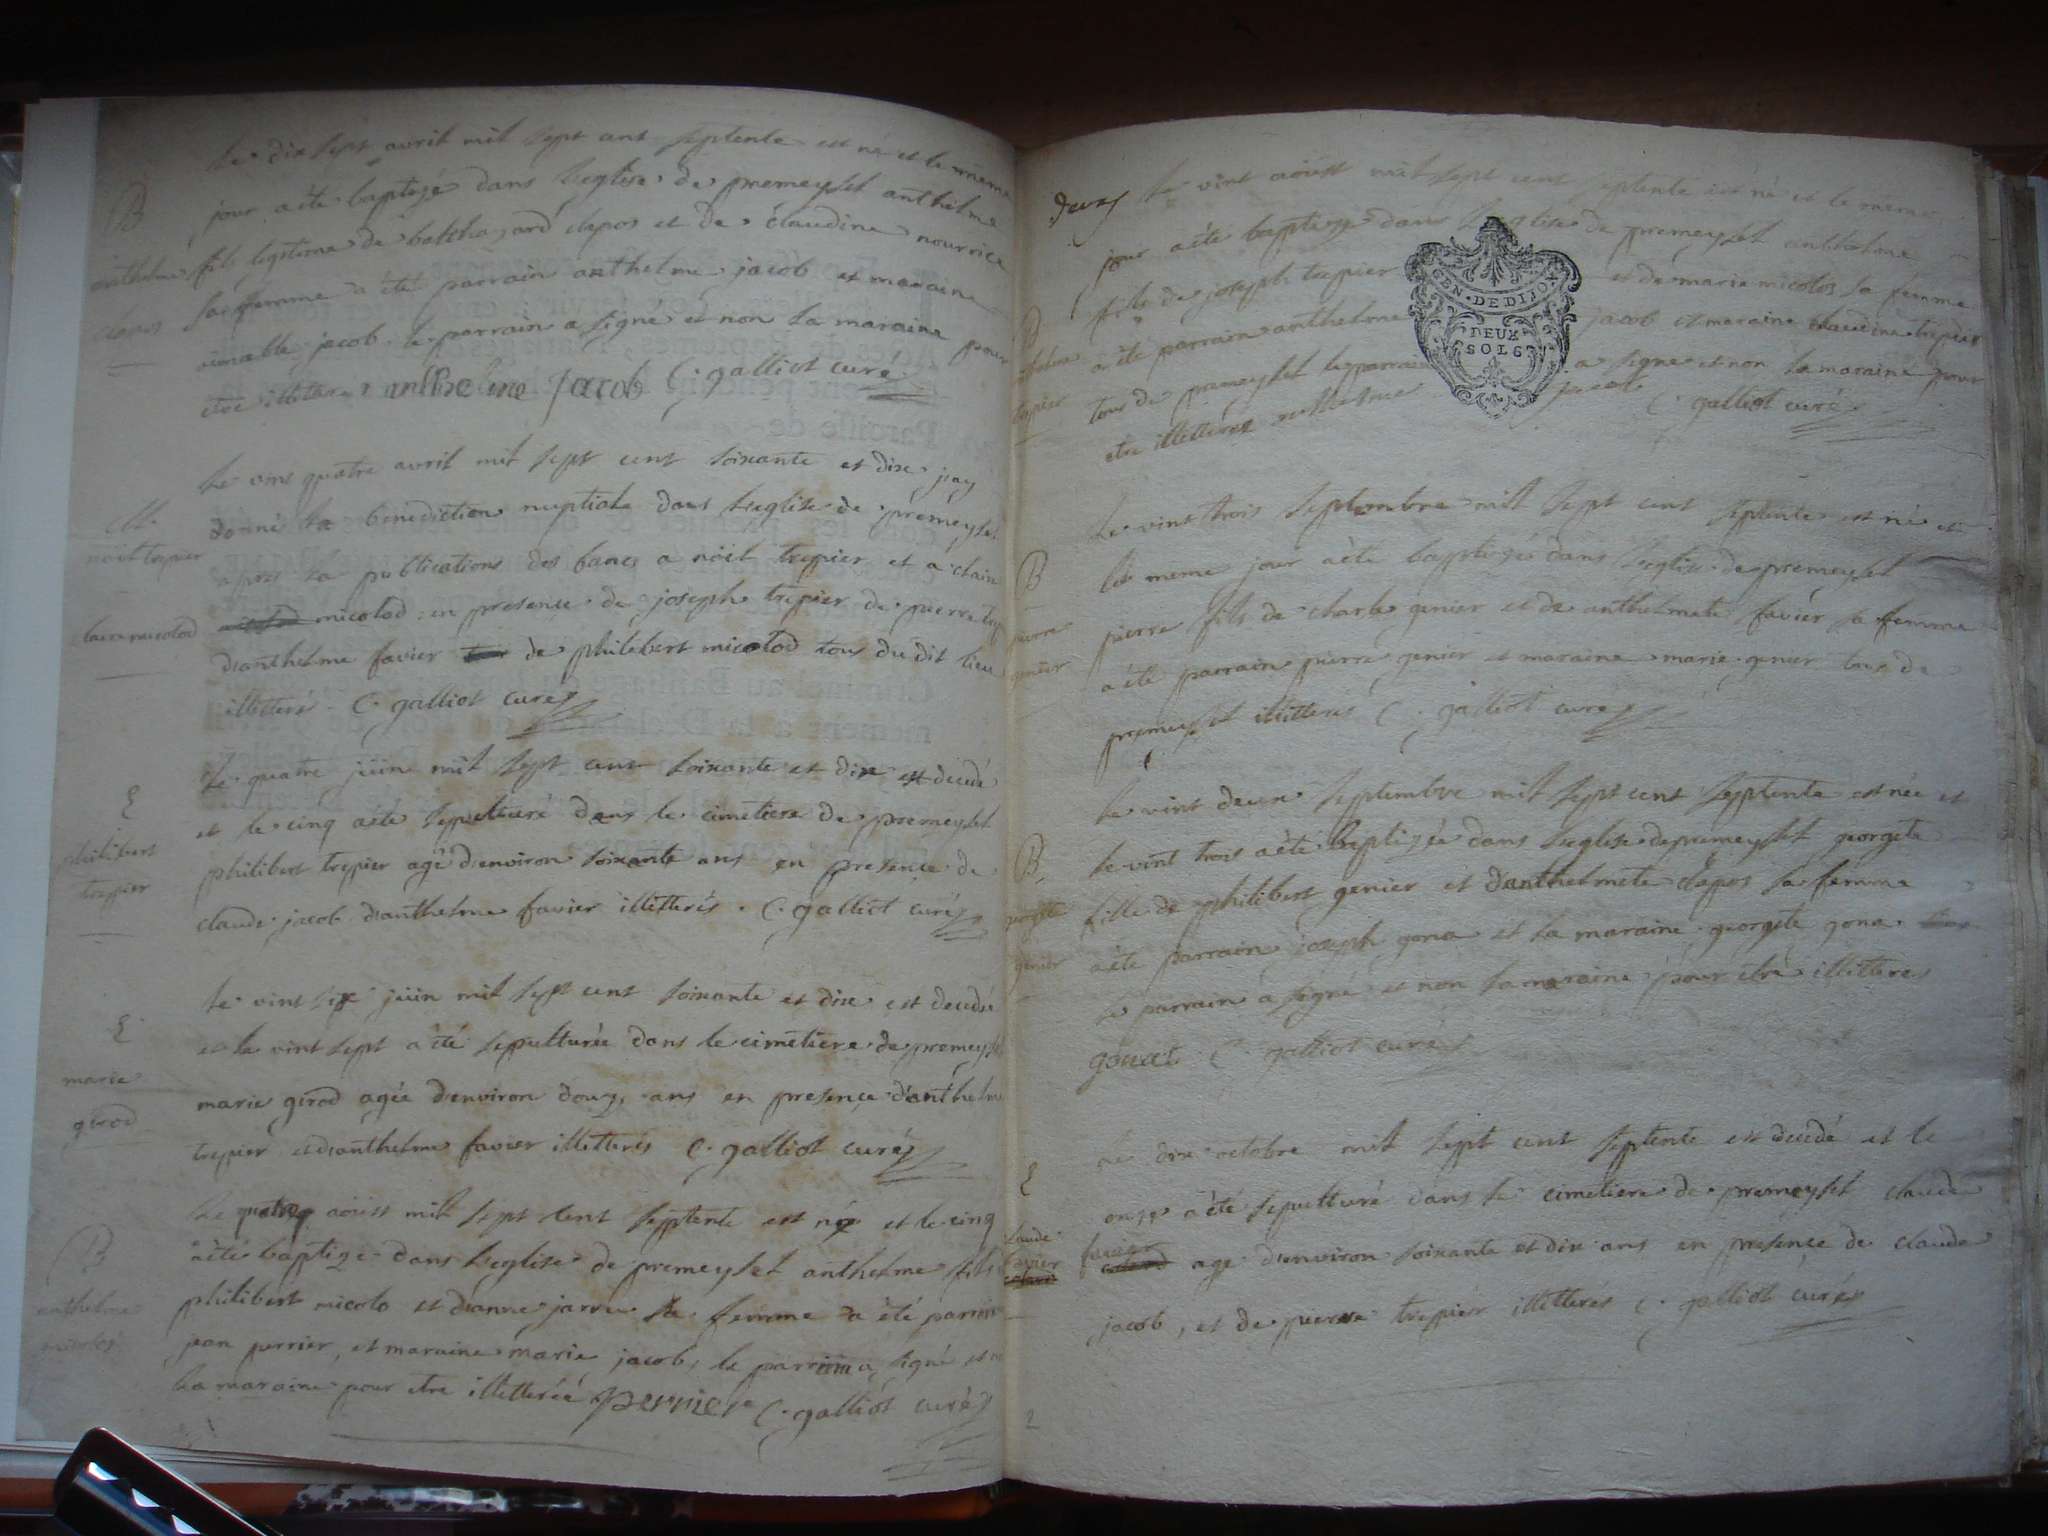 Le dix sept avril mil sept cent septente est né et le meme
B
jour a été baptizé dans l'eglise de premeyzel anthelme
anthelme fils legitime de baltha,ard clapos et de claudine nourrice
clapos
sa femme a été parrain anthelme jacob et maraine
aimable jacob le parrain a signe et non la maraine pour
etre illiterée anthelme Jacob C. galliot curé
Le vint quatre avril mil sept cent soixante et dix j'ay
M.
donné la benediction nuptiale dans l'eglise de premeyzel
noit trepier
apres la publications des bancs a noit trepier et a clair
claire micolod
micolod en presence de joseph trepier de pierre trep
d'anthelme favier de philibert micolod tous du dit lieu
illiterés C. galliot curé
Le quatre juin mil sept cent soixante et dix est decedé
E
et le cinq a été sepulturé dans le cimetiere de premeyzel
philibert
philibert trepier agé d'environ soixante ans en presence de
trepier
claude jacob d'anthelme favier illiterés. C. galliot curé
le vint six juin mil sept cent soixante et dix est decedée
E
et le vint sept a été sepulturée dans le cimetiere de premeyzel
marie
marie girod agée d'environ douze ans en presence d'anthelme
girod
trepier et d'anthelme favier illiterés C. galliot curé
Le quatre aoust mil sept cent septente est né et le cinq
B
a été baptize dans l'eglise de premeyzel anthelme fils
anthelme
philibert micolo et d'anne jarru sa femme a été parrain
micolo
jean perrier, et maraine marie jacob, le parrain a signé et n
la maraine pour etre illiterée perrier C. galliot curé
deux
Le vint aoust mil sept cent septente est né et le meme
jour a été baptize dans l'eglise de premeyzel anthelme
B
fils de joseph trepier et de marie micoloz sa femme
anthelme
a été parrain anthelme jacob et maraine claudine trepier
trepier
tous de premeyzel le parrain a signe et non la maraine pour
etre illiterée anthelme jacob C. galliot curé
GEN·DE DIJON
DEUX
SOLS
Le vint trois septembre mil sept cent septente est né et
B
le meme jour a été baptizé dans l'eglise de premeyzel
pierre
pierre fils de charle genier et de anthelmete favier sa femme
genier
a été parrain pierre genier et maraine marie genier tous de
premeyzel illiterés C. galliot curé
le vint deux septembre mil sept cent septente est née et
B
le vint trois a été baptizée dans l'eglise de premeyzel georgete
georgete
fille de philibert genier et d'anthelmete clapos sa femme
genier
a été parrain joseph gona et la maraine georgete gona
le parrain a signé et non la maraine pour etre illiteree
gonat C. galliot curé
Le dix octobre mil sept cent septente est decedé et le
E
onze a été sepulturé dans le cimetiere de premeyzel claude
claude
favier
favier age d'environ soixante et dix ans en presence de claude
jacob, et de pierre trepier illiterés C. galliot curé
2